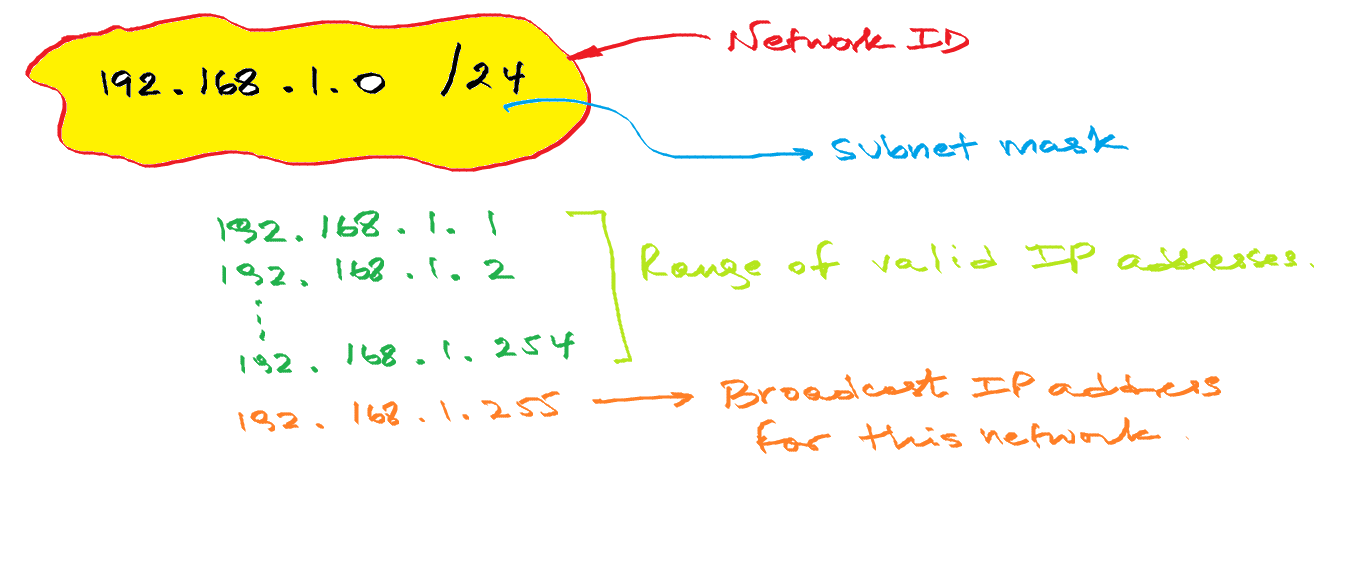 192.168.1.0 /24
Network ID
subnet mask
192.168.1.1
192.168.1.2
192.168.1.254
Range of valid IP addresses.
192.168.1.255
Broadcast IP address
for this network.